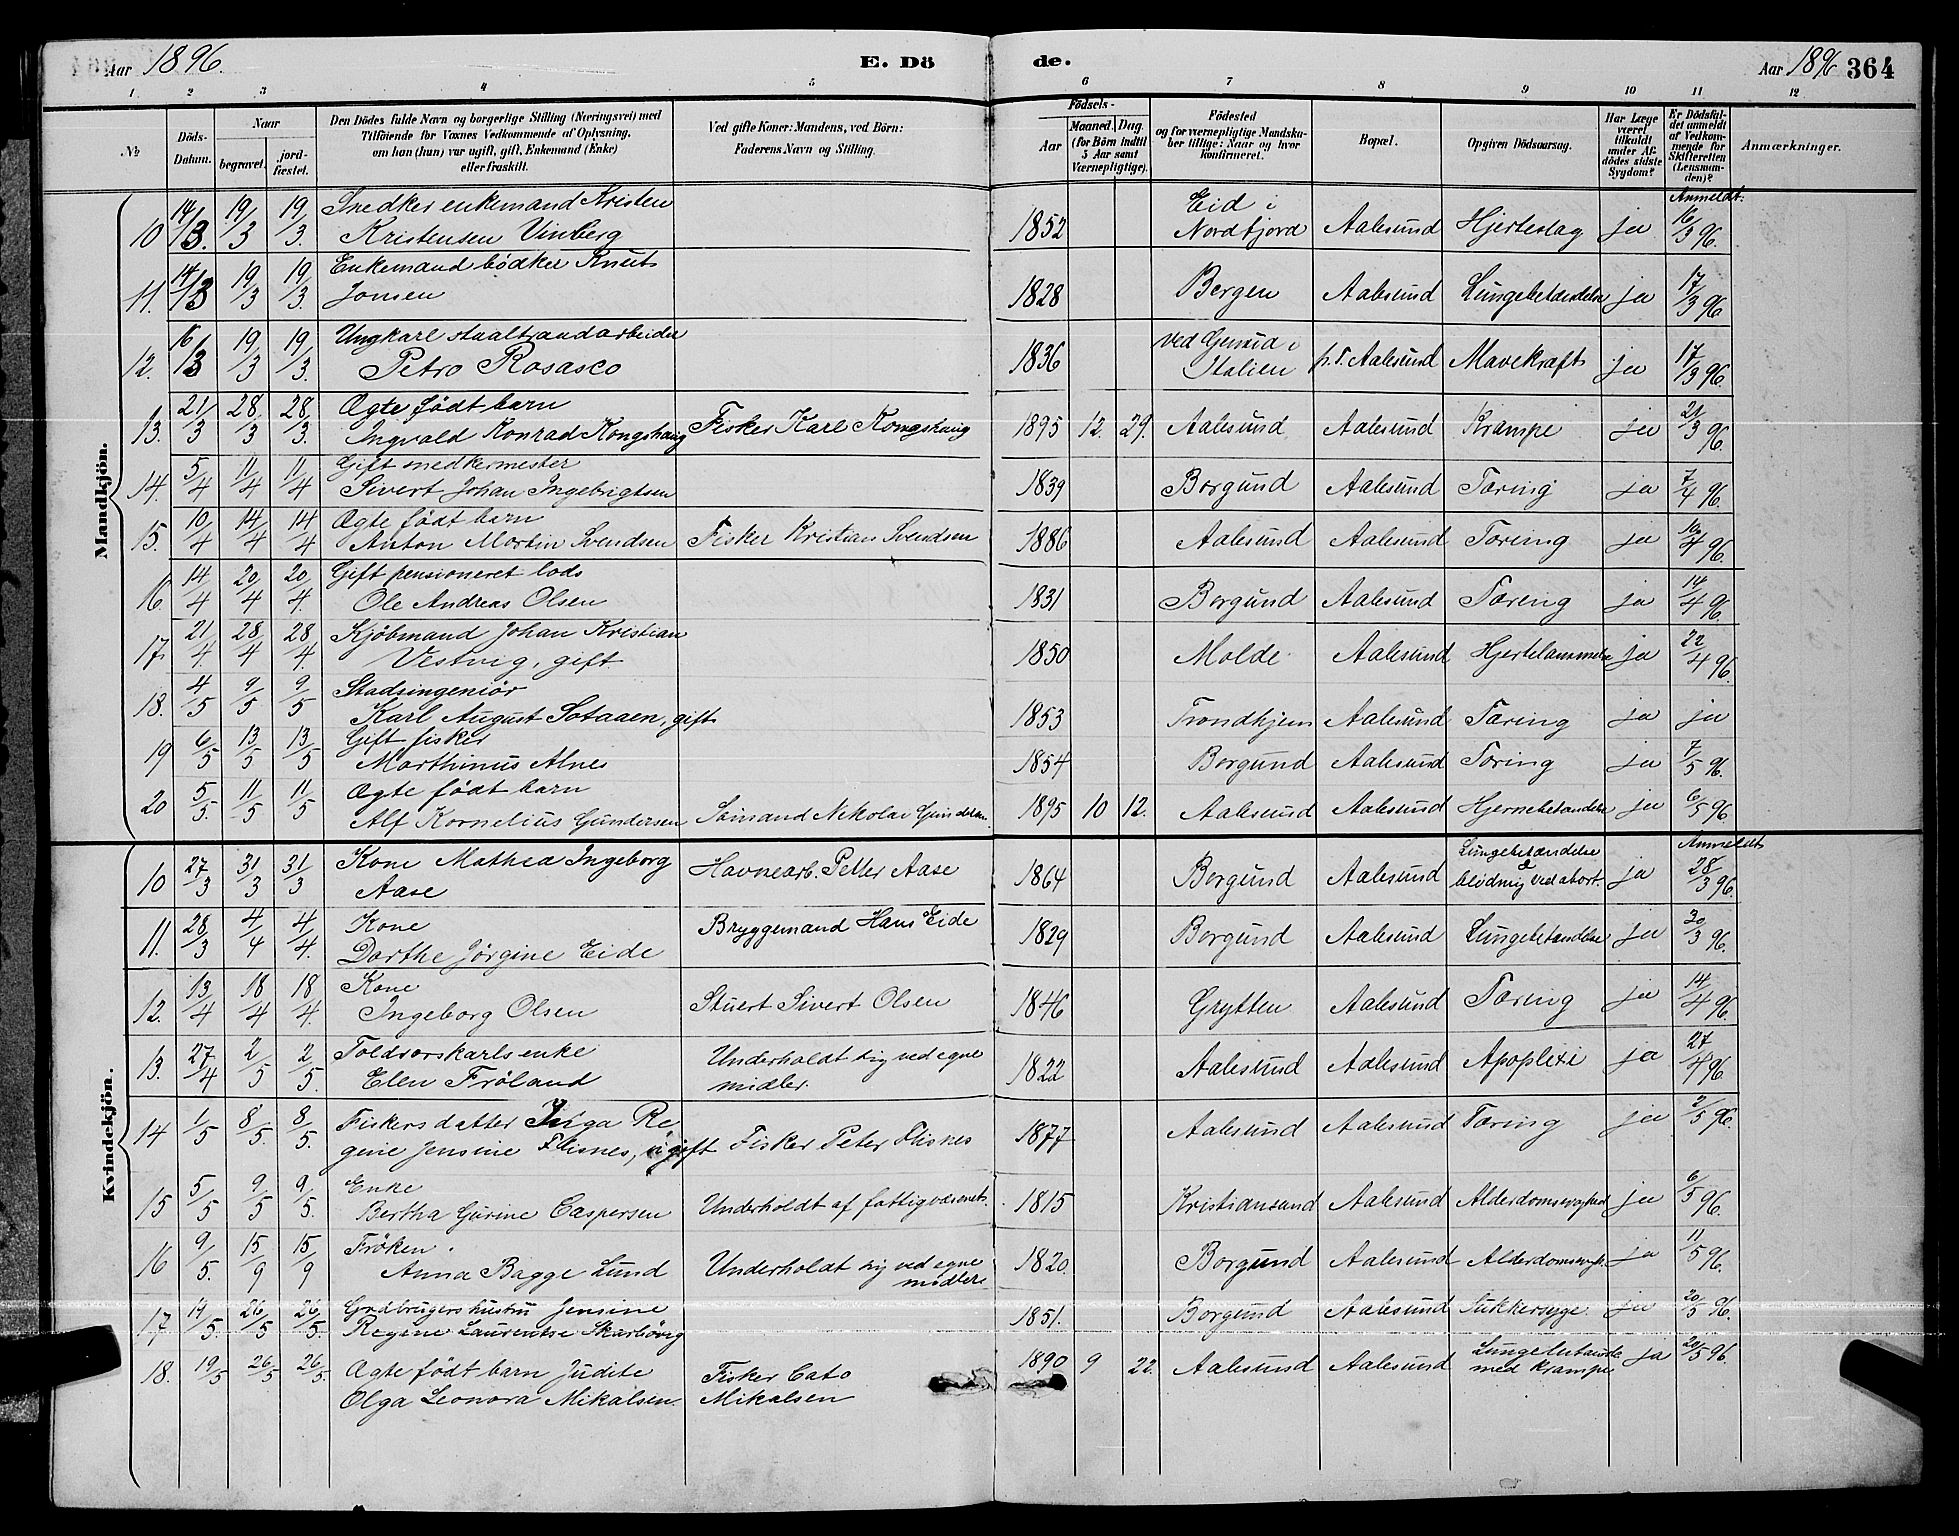 Aar 1896.
E. Dö
de.
Aar 1896
364
1. 2 3 4 5 6 7 8 9 10 11 12
№
Döds-Datum.
Naar
begravet.
jord-fæstet.
Den Dödes fulde Navn og borgerlige Stilling (Næringsvei) med
Tilföiende for Voxnes Vedkommende af Oplysning,
om han (hun) var ugift, gift, Enkemand (Enke)
eller fraskilt.
Ved gifte Koner: Mandens, ved Börn:
Faderens Navn og Stilling.
Födsels-
Aar
Maaned. Dag.
(for Börn indtil
5 Aar samt
Værnepligtige).
Födested
og for værnepligtige Mandska-
ber tillige: Naar og hvor
konfirmeret.
Bopæl.
Opgiven Dödsaarsag.
Har Læge
været
tilkaldt
under Af-
dödes sidste
Sygdom?
Er Dödsfal-
det anmeldt
af Vedkom-
mende for
Skifteretten
(Lensman-
den)?
Anmærkninger.
Mandkjön.
Anmeldt.
10 14/3. 19/3 19/3. Snedker enkemand Kristen
Kristensen Vinberg 1852 Eid i
Nordfjord Aalesund Hjerteslag ja 16/3 96.
11. 14/3 19/3 19/3. Enkemand bödker Knut
Jonsen 1828 Bergen Aalesund Lungebetændelse ja 17/3 96.
12. 16/3 19/3 19/3. Ungkarl staaltraadarbeider
Petro Rosasco 1836 ved Genua i
Italien p.t. Aalesund Mavekræft ja 17/3 96.
13. 21/3 28/3 28/3. Ægte födt barn
Ingvald Konrad Kongshaug Fisker Karl Kongshaug 1895 12. 29. Aalesund Aalesund Krampe ja 21/3 96.
14. 5/4 11/4 11/4 Gift snedkermester
Sivert Johan Ingebrigtsen 1839 Borgund Aalesund Tæring ja 7/4 96.
15. 10/4 14/4 14/4 Ægte födt barn
Anton Martin Svendsen Fisker Kristian Svendsen 1886 Aalesund Aalesund Tæring ja 10/4 96.
16. 14/4 20/4 20/4. Gift pensioneret lods
Ole Andreas Olsen 1831 Borgund Aalesund Tæring ja 14/4 96.
17. 21/4. 28/4 28/4. Kjöbmand Johan Kristian
Vestvig, gift 1850 Molde Aalesund Hjertelammelse ja 22/4 96.
18. 4/5 9/5 9/5 Stadsingeniör
Karl August Sotaaen, gift 1853 Trondhjem Aalesund Tæring ja ja
19 6/5 13/5 13/5 Gift fisker
Marthinus Alnes 1854 Borgund Aalesund Tæring ja 7/5 96.
20 5/5. 11/5 11/5 Ægte födt barn
Alf Kornelius Gundersen Sömand Nikolai Gundersen 1895 10 12. Aalesund Aalesund Hjernebetændelse ja 6/5 96.
Kvindekjön.
Anmeldt
10 27/3 31/3 31/3 Kone Mathea Ingeborg
Aase Havnearb. Petter Aase 1864 Borgund Aalesund Lungebetændelse
& blödning ved abort. ja 28/3 96.
11. 28/3 4/4 4/4. Kone
Dorthe Jörgine Eide Bryggemand Hans Eide 1829 Borgund Aalesund Lungebetændelse ja 30/3 96.
12. 13/4 18/4 18/4. Kone
Ingeborg Olsen Stuert Sivert Olsen 1846 Grytten Aalesund Tæring ja 14/4 96.
13. 27/4 2/5 2/5. Toldrorskarls enke
Elen Fröland Underholdt sig ved egne
midler. 1822 Aalesund Aalesund Apoplexi ja 27/4 96
14 1/5 8/5 8/5. Fiskers datter Inga Re
gine Jensine Flisnes, ugift Fisker Peter Flisnes 1877 Aalesund Aalesund Tæring ja 2/5 96.
15 5/5 9/5 9/5. Enke
Bertha Gurine Caspersen Underholdt af fattigvæsenet. 1815 Kristiansund Aalesund Alderdomssvaghed ja 6/5 96.
16 9/5. 15/9 15/9 Fröken.
Anna Bagge Lund Underholdt sig ved egne
midler 1820. Borgund Aalesund Alderdomssvagh. ja 11/5 96.
17 19/5. 26/5 26/5. Grdbrugers hustru Jensine
Regine Laurentse Skarbövig 1851. Borgund Aalesund Sukkersyge. ja 20/5 96.
18. 19/5 26/5 26/5. Ægte födt barn Judite
Olga Leonora Mikalsen. Fisker Cato
Mikalsen 1890 9 22. Aalesund Aalesund Lungebetændelse
med krampe ja 20/5 96.